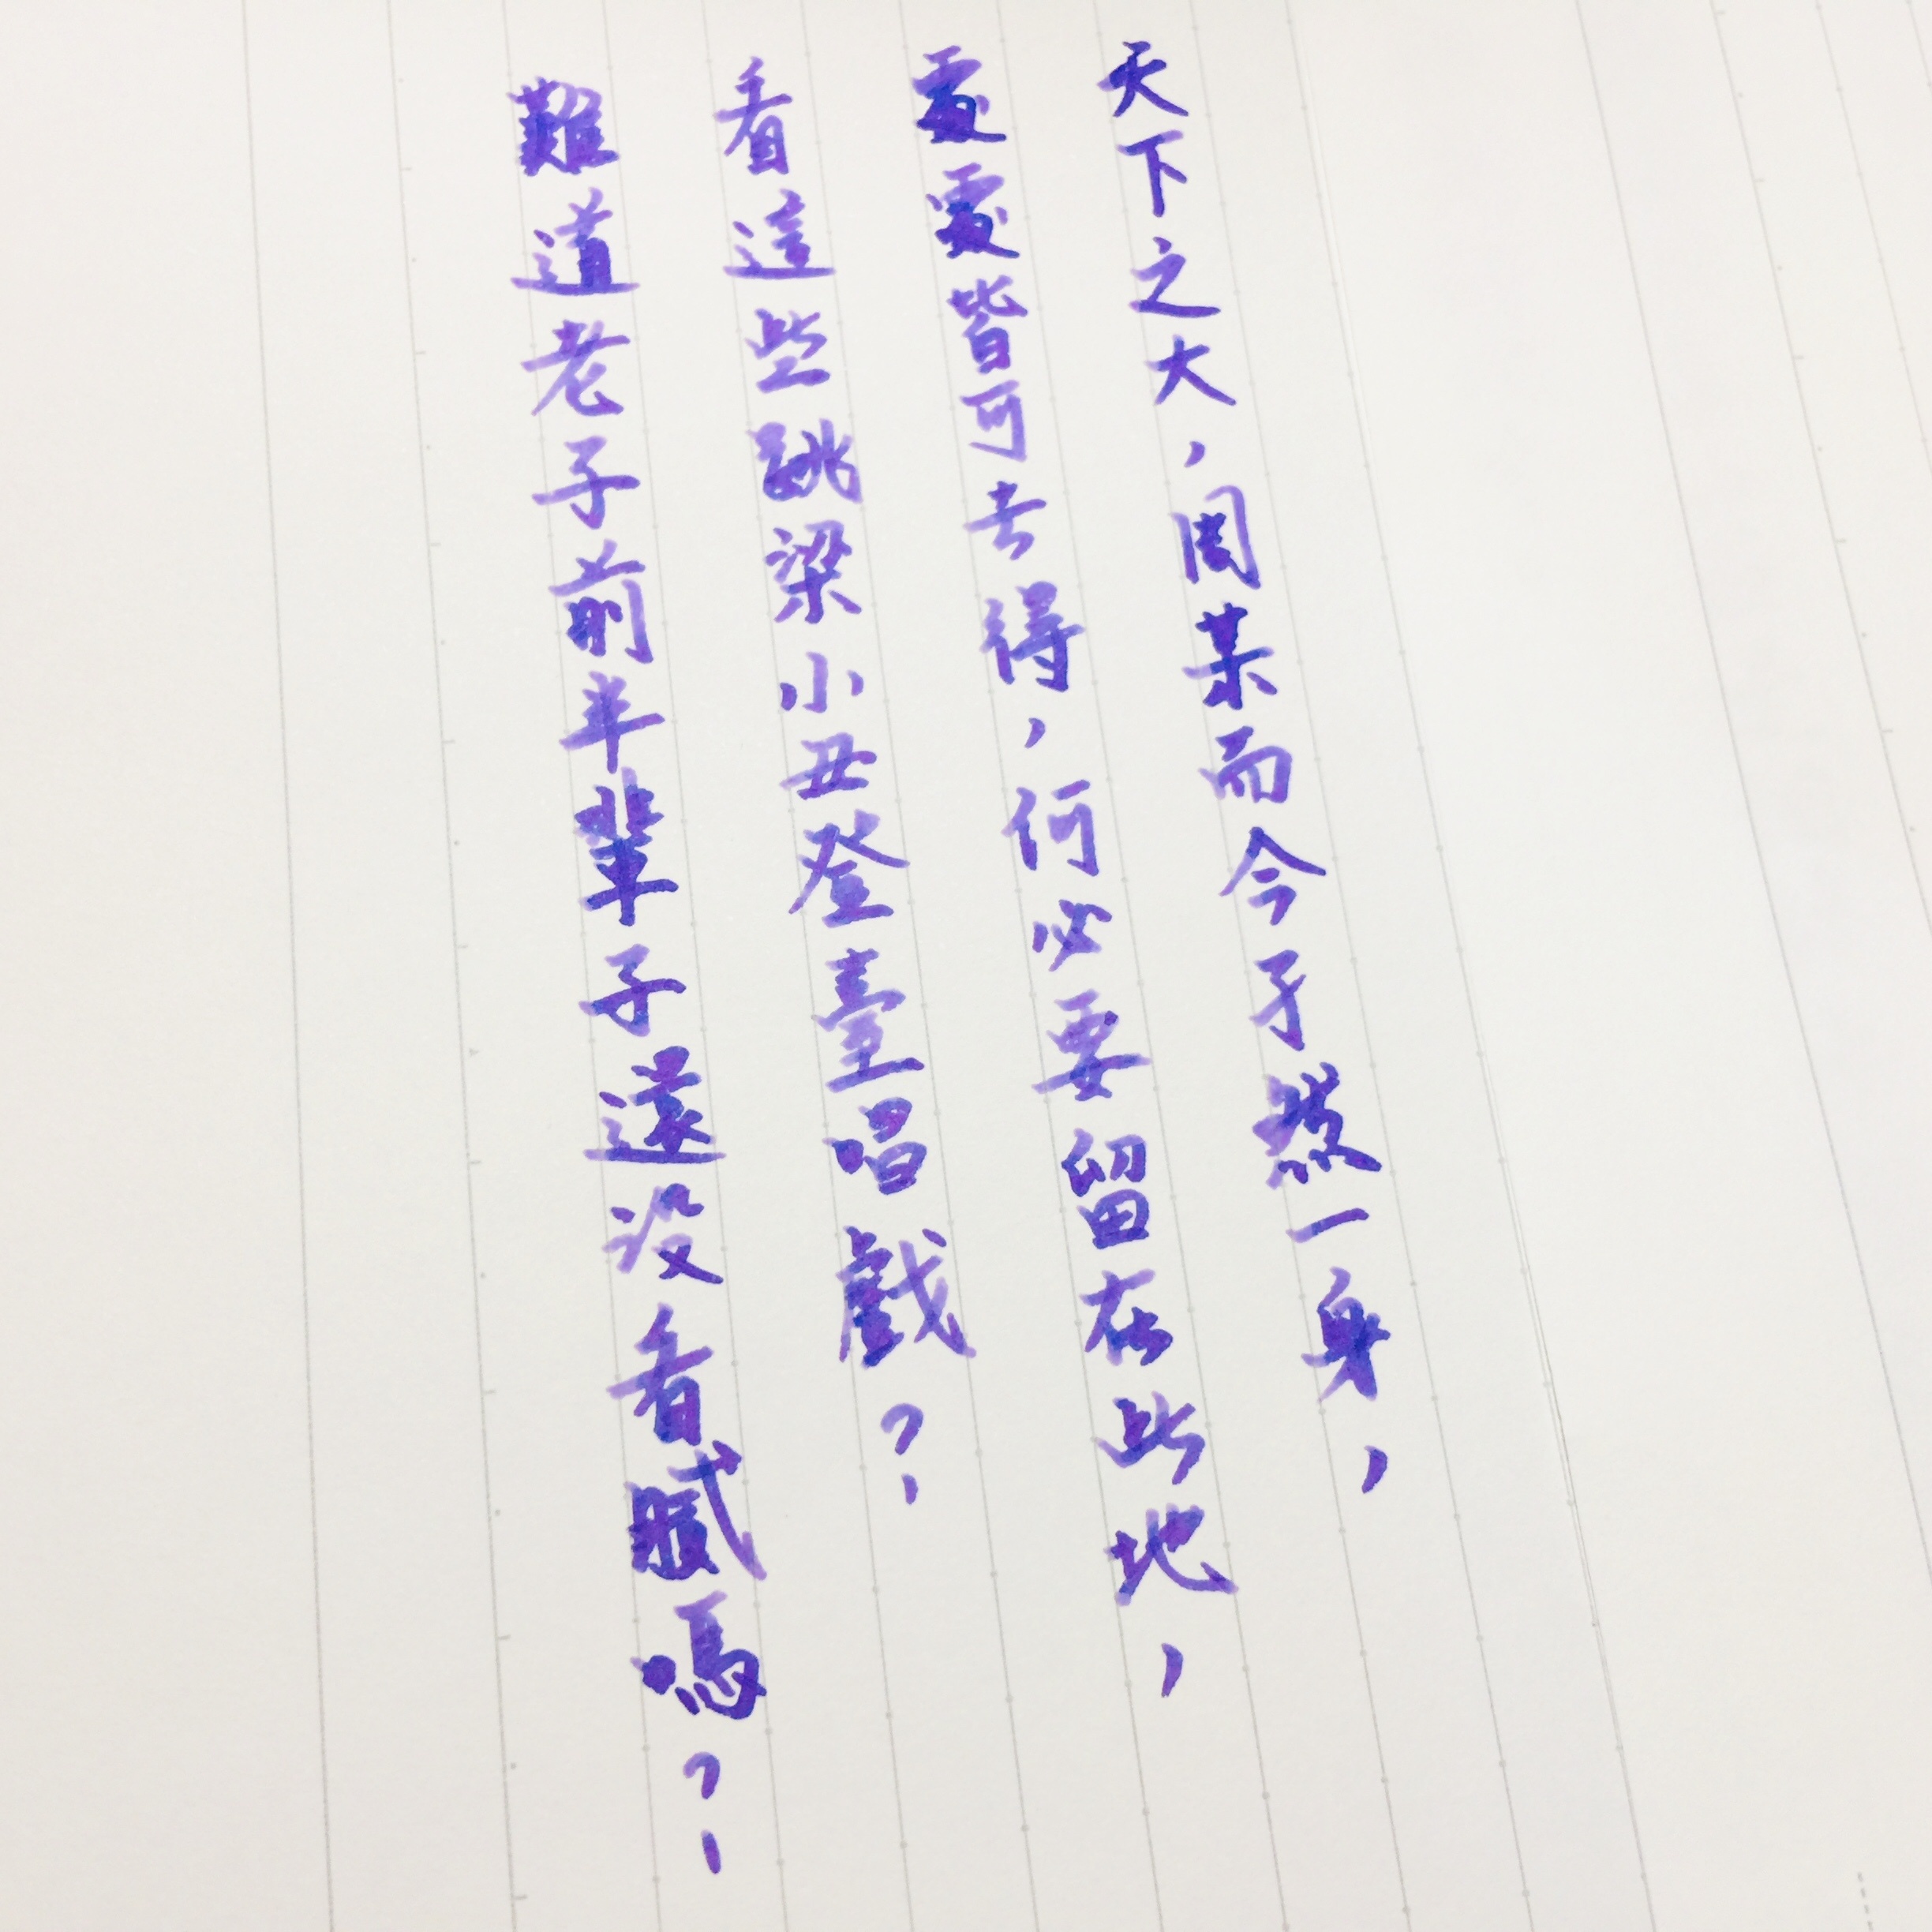 天下之大，周某而今孑然一身，
處處皆可去得，何必要留在此地，
看這些跳梁小丑登臺唱戲？
難道老子前半輩子還沒看膩嗎？